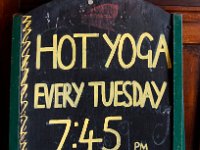 HOT YOGA
EVERY TUESDAY
7:45 PM